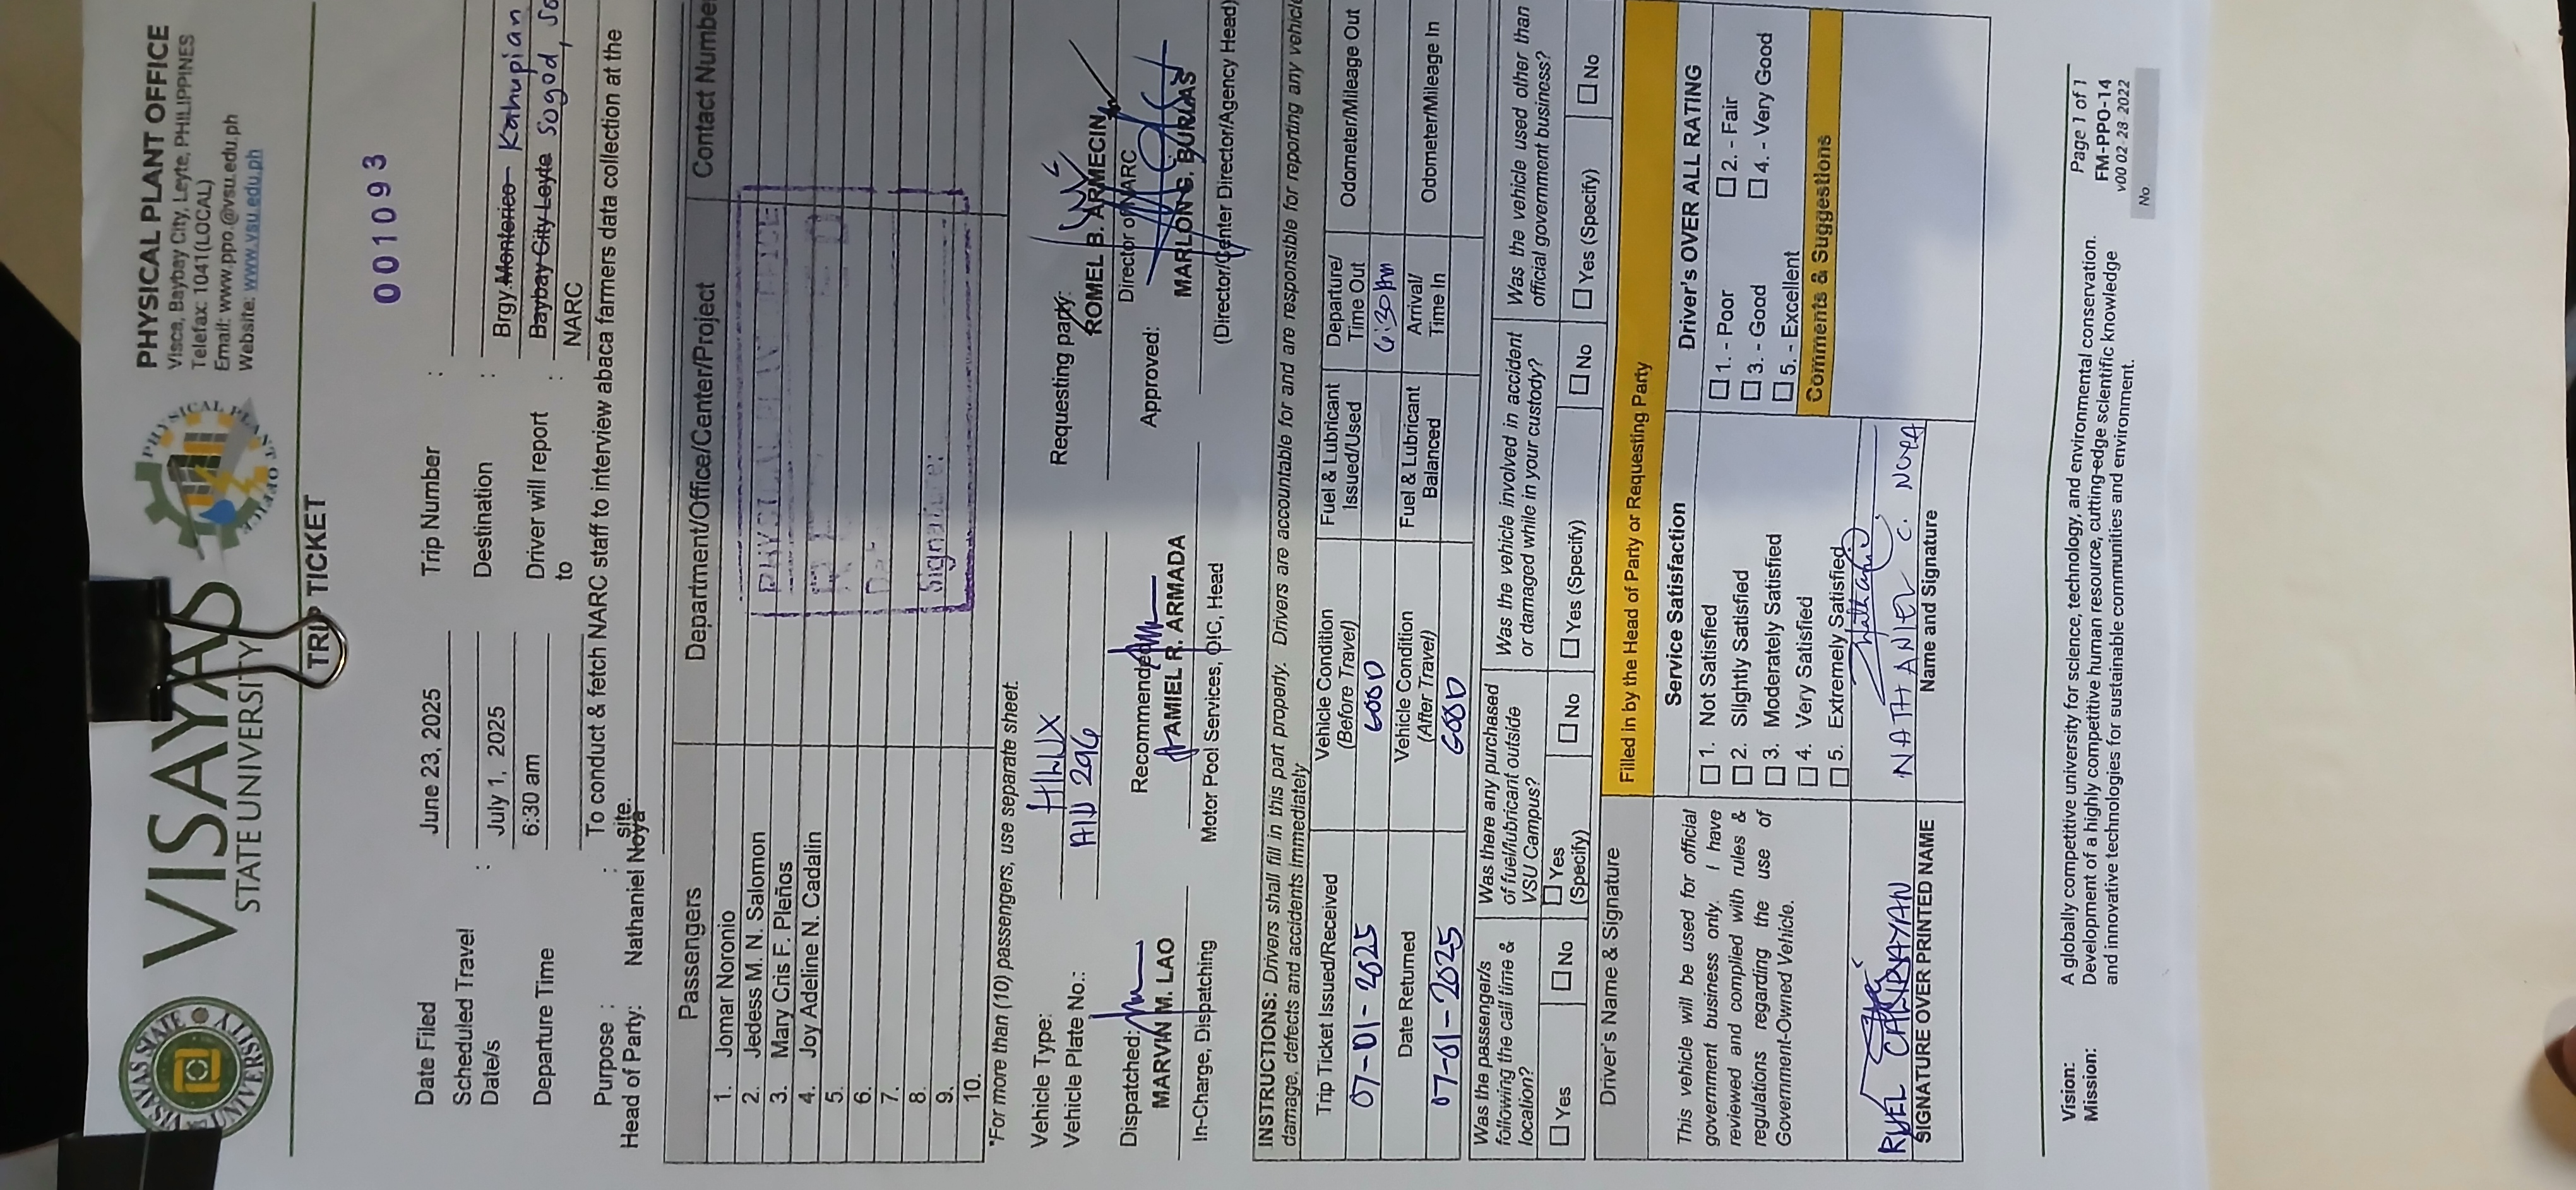 VISAYAS
STATE UNIVERSITY
PHYSICAL PLANT OFFICE
Visca, Baybay City, Leyte, PHILIPPINES
Telefax: 1041(LOCAL)
Email: www.ppo.@vsu.edu.ph
Website: www.vsu.edu.ph
TRIP TICKET
001093
Date Filed June 23, 2025 Trip Number :
Scheduled Travel Date/s : July 1, 2025 Destination : Brgy. Monterico Kahupian
Baybay City Leyte Sogod, So
Departure Time 6:30 am Driver will report to : NARC
Purpose : : To conduct & fetch NARC staff to interview abaca farmers data collection at the site.
Head of Party: Nathaniel Noya
Passengers Department/Office/Center/Project Contact Number
1. Jomar Noronio
2. Jedess M. N. Salomon
3. Mary Cris F. Pleños
4. Joy Adeline N. Cadalin
5.
6.
7.
8.
9.
10.
Signature:
*For more than (10) passengers, use separate sheet.
Vehicle Type: HILUX
Vehicle Plate No.:
Requesting party:
ROMEL B. ARMECIN
Director of NARC
Dispatched: Recommended Approved:
MARVIN M. LAO JAMIEL R. ARMADA MARLON G. BURLAS
In-Charge, Dispatching Motor Pool Services, OIC, Head (Director/Center Director/Agency Head)
INSTRUCTIONS: Drivers shall fill in this part properly. Drivers are accountable for and are responsible for reporting any vehicle
damage, defects and accidents immediately
Trip Ticket Issued/Received Vehicle Condition (Before Travel) Fuel & Lubricant Issued/Used Departure/ Time Out Odometer/Mileage Out
07-01-2025 GOOD 6:30 Am
Date Returned Vehicle Condition (After Travel) Fuel & Lubricant Balanced Arrival/ Time In Odometer/Mileage In
07-01-2025 GOOD
Was the passenger/s following the call time & location? Was there any purchased of fuel/lubricant outside VSU Campus? Was the vehicle involved in accident or damaged while in your custody? Was the vehicle used other than official government business?
☐ Yes ☐ No ☐ Yes (Specify) ☐ No ☐ Yes (Specify) ☐ No ☐ Yes (Specify) ☐ No
Driver's Name & Signature
Filled in by the Head of Party or Requesting Party
This vehicle will be used for official
government business only. I have
reviewed and complied with rules &
regulations regarding the use of
Government-Owned Vehicle.
Service Satisfaction
☐ 1. Not Satisfied
☐ 2. Slightly Satisfied
☐ 3. Moderately Satisfied
☐ 4. Very Satisfied
☐ 5. Extremely Satisfied
Driver's OVER ALL RATING
☐ 1. - Poor ☐ 2. - Fair
☐ 3. - Good ☐ 4. - Very Good
☐ 5. - Excellent
Comments & Suggestions
RUEL
SIGNATURE OVER PRINTED NAME
NATHANIEL C. NOYA
Name and Signature
Vision: A globally competitive university for science, technology, and environmental conservation.
Mission: Development of a highly competitive human resource, cutting-edge scientific knowledge
and innovative technologies for sustainable communities and environment.
Page 1 of 1
FM-PPO-14
v00 02-28-2022
No